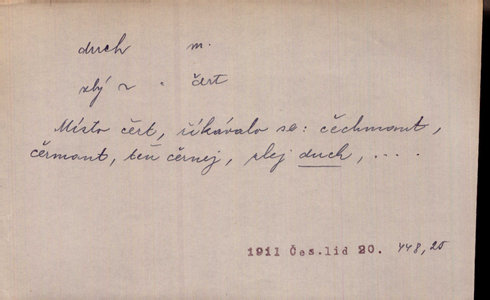 duch m.
zlý ~ · čert
Místo čert, říkávalo se: čechmant,
čermant, ten černej, zlej duch, ....
1911 Čes.lid 20. 448,25